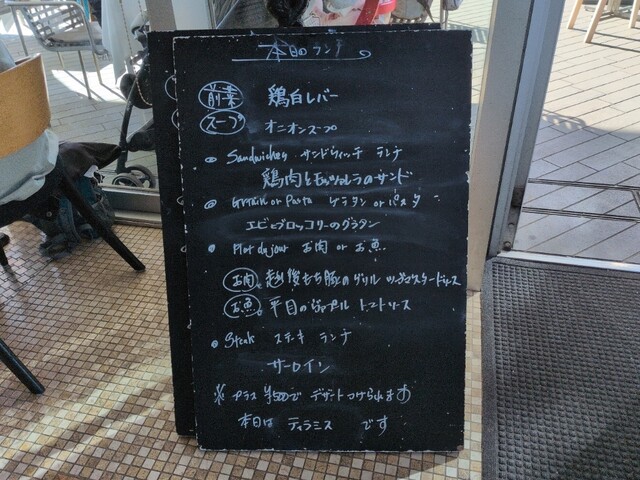 本日のランチ
前菜 鶏白レバー
スープ オニオンスープ
Sandwiches サンドウィッチ ランチ
鶏肉とモッツァレラのサンド
Gratin or Pasta グラタン or パスタ
エビとブロッコリーのグラタン
Plat du jour お肉 or お魚
お肉 越後もち豚のグリル マスタードソース
お魚 平目の トマトソース
Steak ステーキ ランチ
サーロイン
※ プラス ¥500で デザートつけられます
本日は ティラミス です